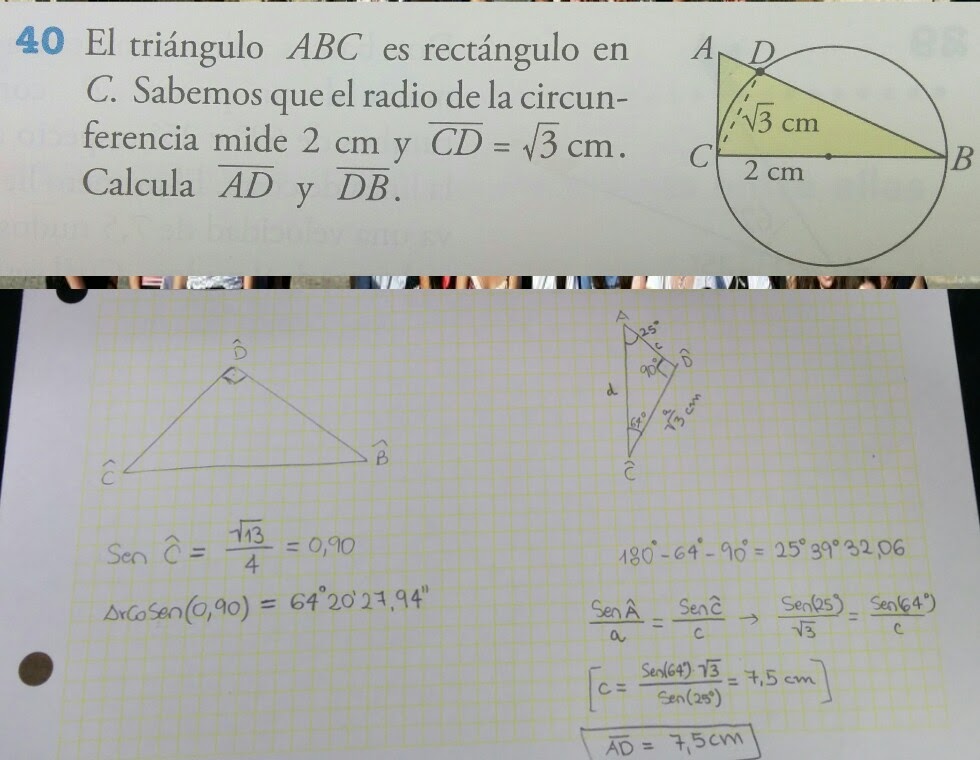 40 El triángulo ABC es rectángulo en
C. Sabemos que el radio de la circun-
ferencia mide 2 cm y CD = √3 cm.
Calcula AD y DB.
A D
√3 cm
C B
2 cm
D̂
Ĉ B̂
Sen Ĉ = √13/4 = 0,90
ArcoSen(0,90) = 64°20'27,94"
A
25°
c
90° D̂
d
a
√3 cm
64°
Ĉ
180° - 64° - 90° = 25°39°32,06
Sen Â/a = Sen Ĉ/c → Sen(25°)/√3 = Sen(64°)/c
[c = Sen(64°)·√3/Sen(25°) = 7,5 cm]
AD = 7,5cm